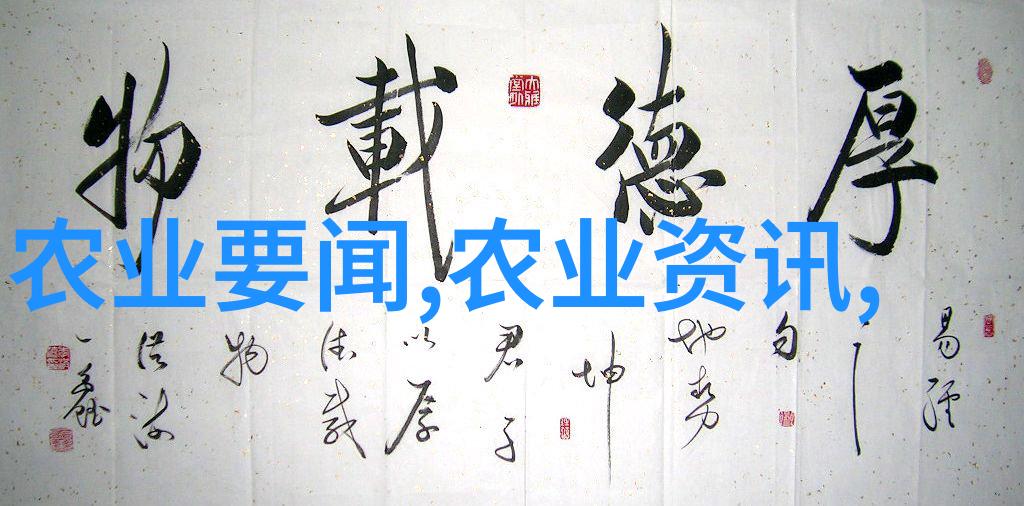 厚德載物
农业要闻,农业资讯,
易經
句
地勢
坤
君子
以厚
德載
物